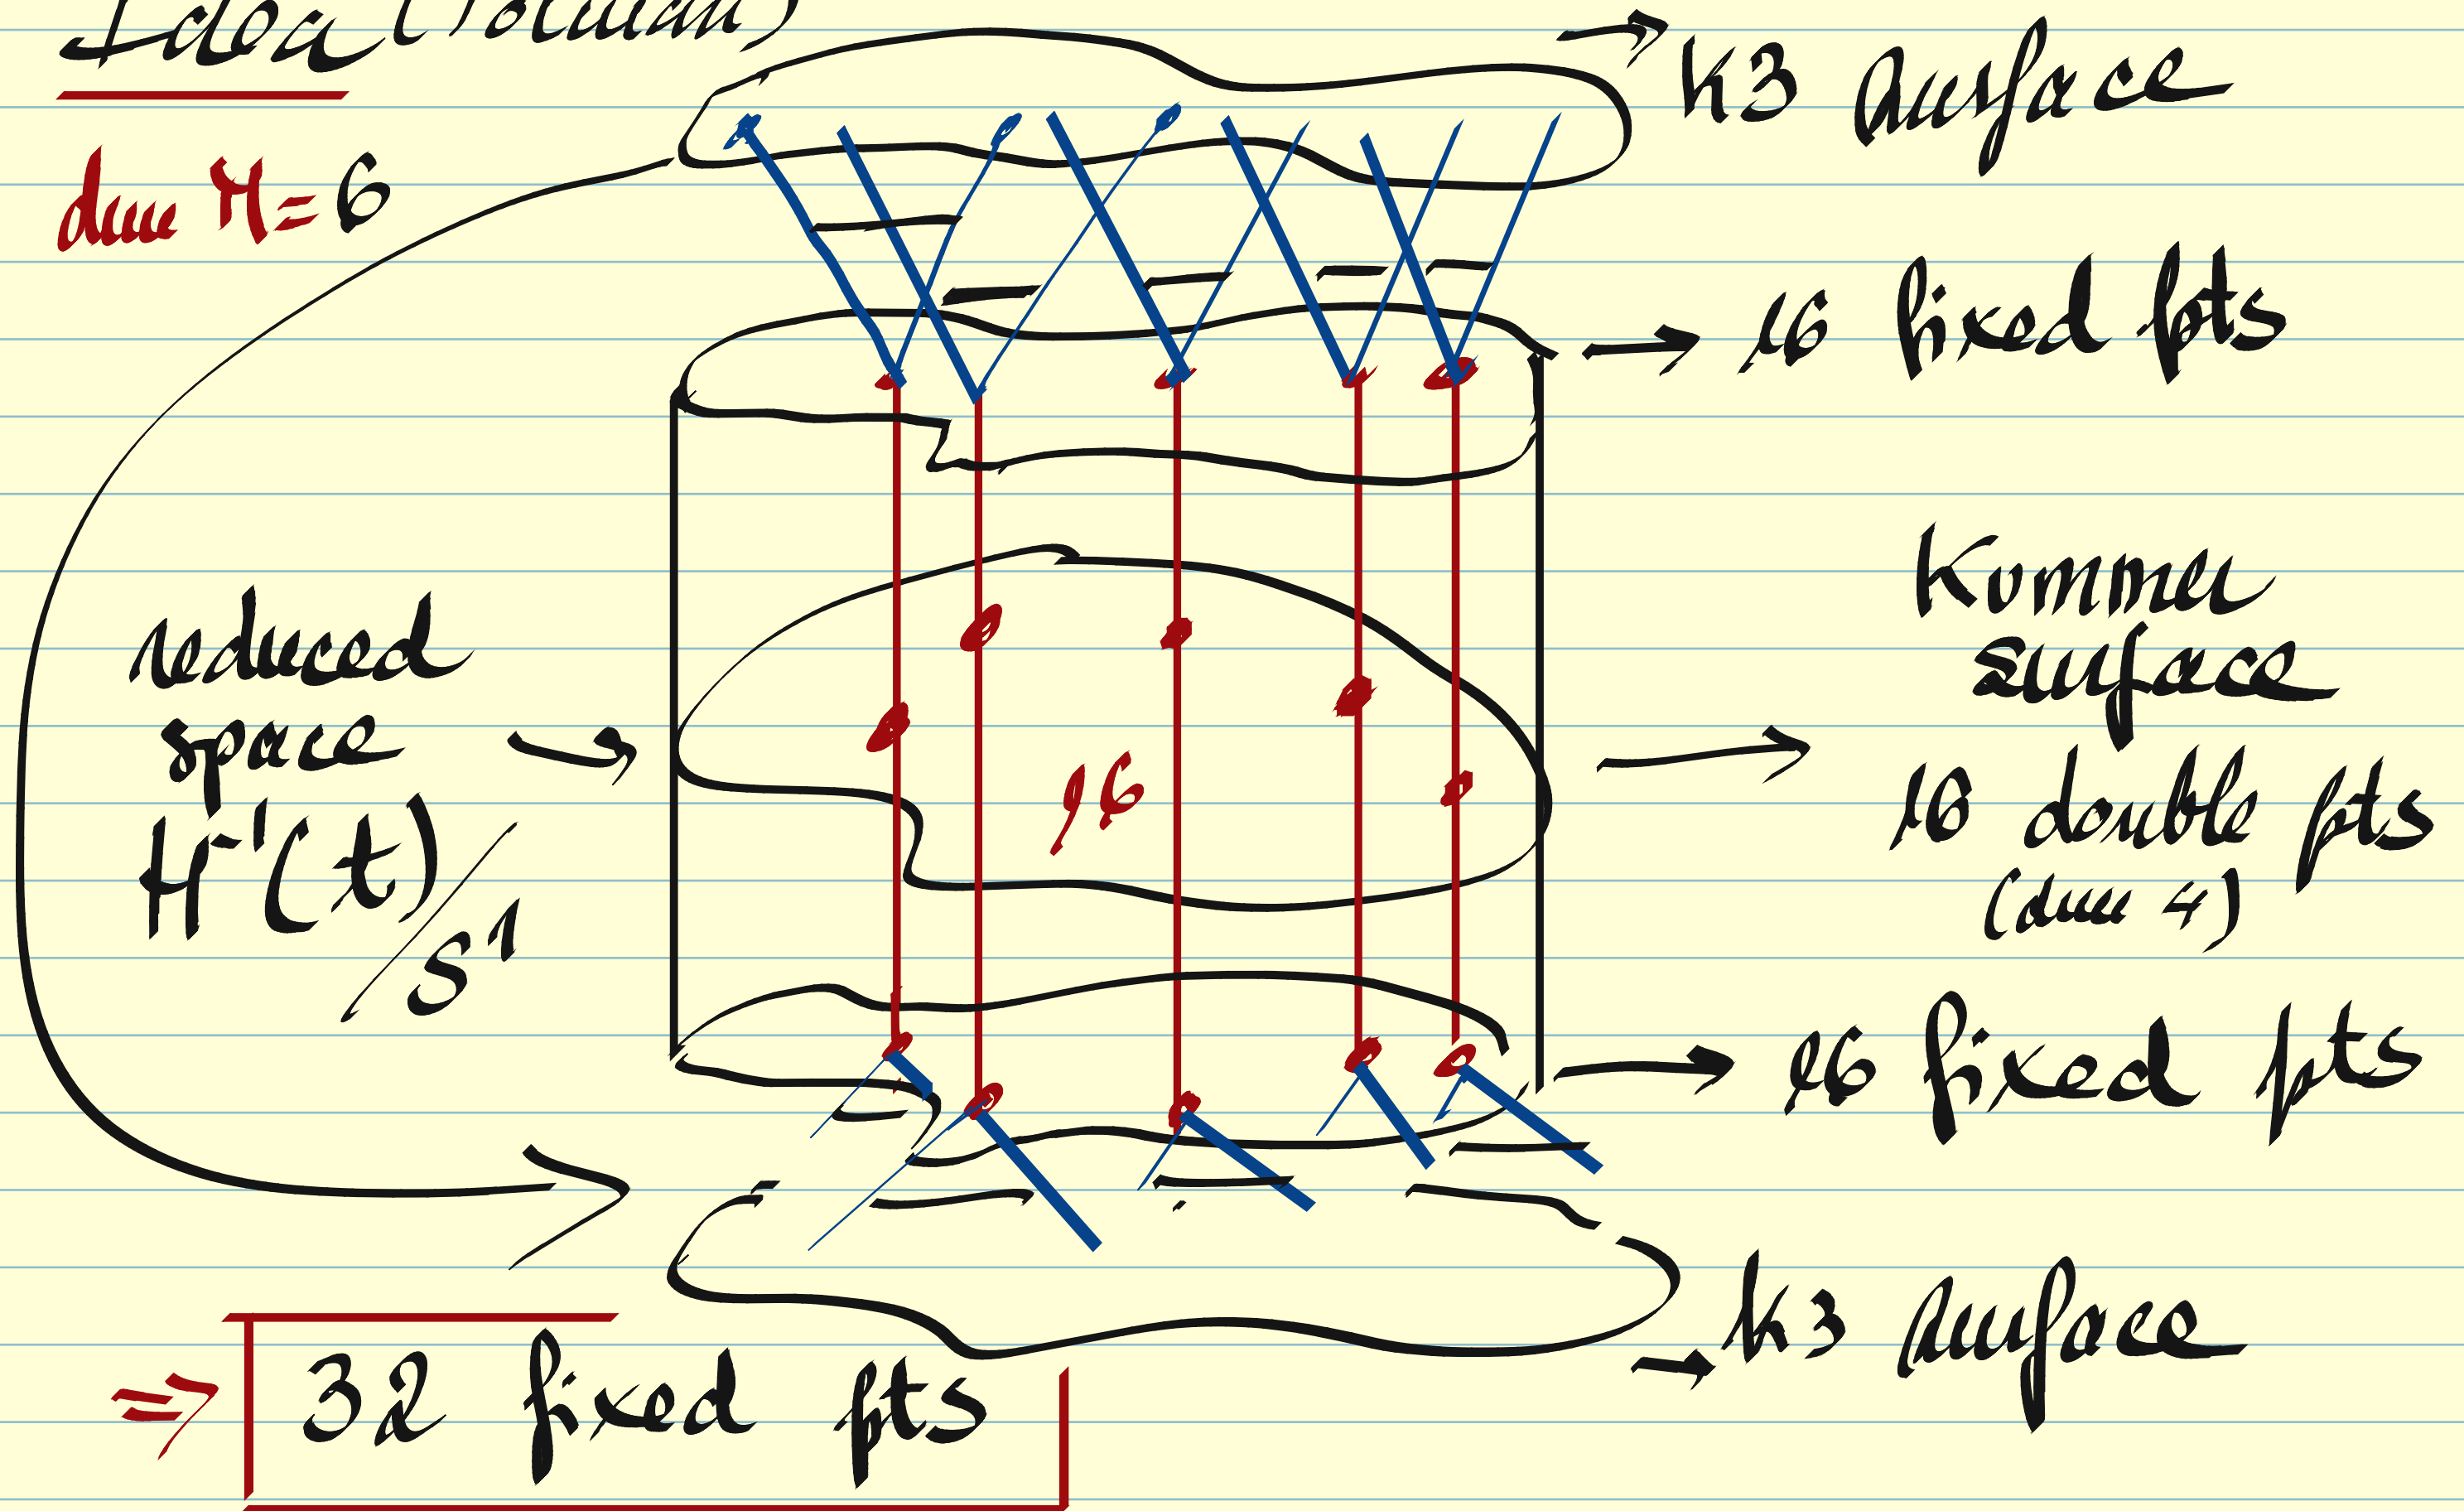 Idea (Tolman)
dim M = 6
→ K3 surface
→ 16 fixed pts
reduced
space →
H⁻¹(t)/S¹
16
→ Kummer
surface
16 double pts
(dim 4)
→ 16 fixed pts
→ K3 surface
⇒ 32 fixed pts